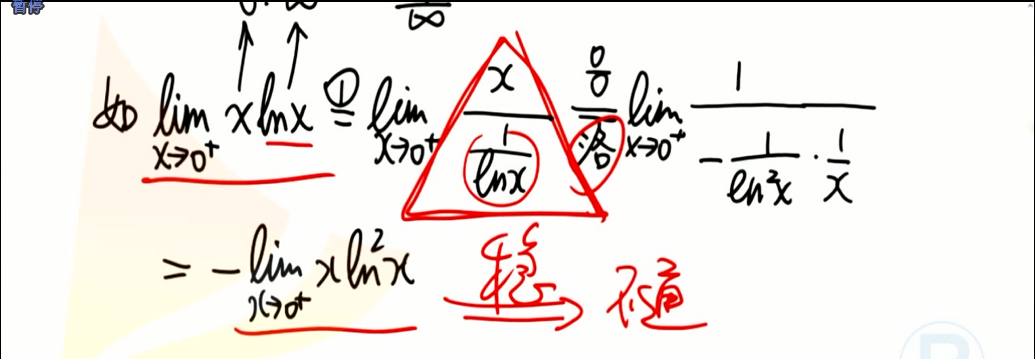 暂停
0·∞ 1/∞
如 lim_{x→0⁺} x ln x ①= lim_{x→0⁺} x/(1/ln x) =(0/0 洛) lim_{x→0⁺} 1/(-1/ln²x · 1/x)
= -lim_{x→0⁺} x ln²x